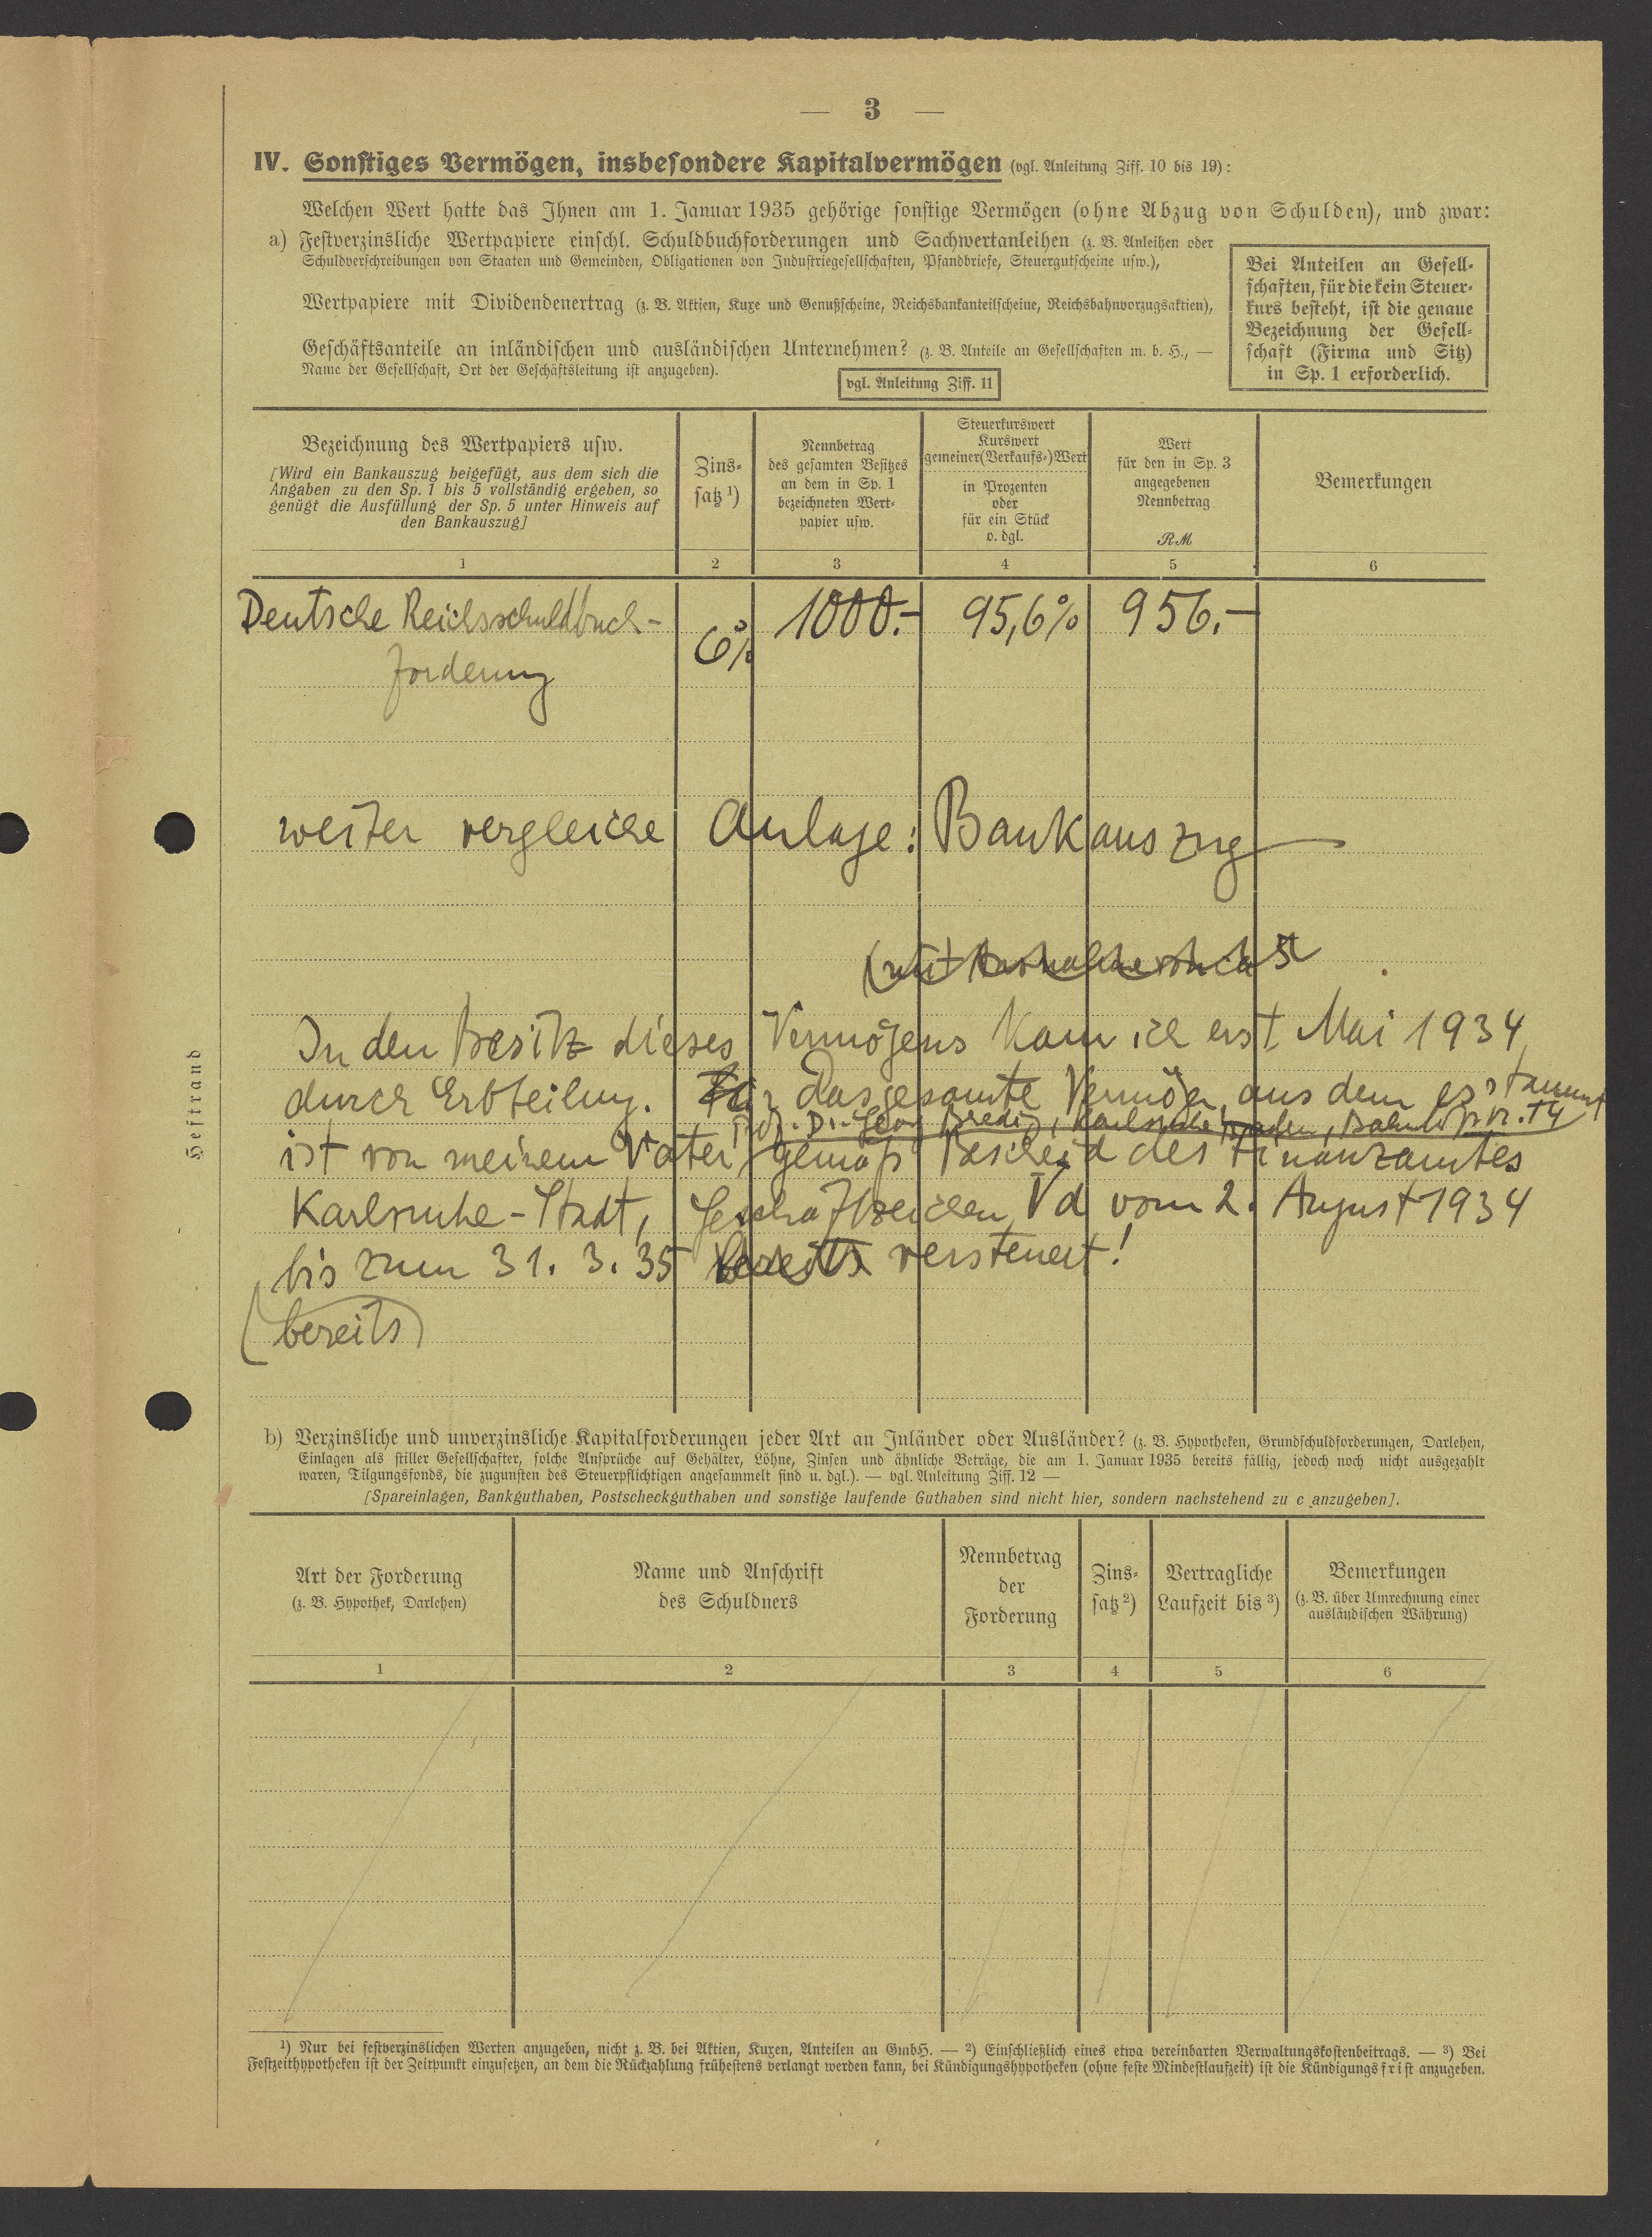 — 3 —
IV. Sonstiges Vermögen, insbesondere Kapitalvermögen (vgl. Anleitung Ziff. 10 bis 19):
Welchen Wert hatte das Ihnen am 1. Januar 1935 gehörige sonstige Vermögen (ohne Abzug von Schulden), und zwar:
a) Festverzinsliche Wertpapiere einschl. Schuldbuchforderungen und Sachwertanleihen (z. B. Anleihen oder
Schuldverschreibungen von Staaten und Gemeinden, Obligationen von Industriegesellschaften, Pfandbriefe, Steuergutscheine usw.),
Wertpapiere mit Dividendenertrag (z. B. Aktien, Kuxe und Genußscheine, Reichsbankanteilscheine, Reichsbahnvorzugsaktien),
Geschäftsanteile an inländischen und ausländischen Unternehmen? (z. B. Anteile an Gesellschaften m. b. H., —
Name der Gesellschaft, Ort der Geschäftsleitung ist anzugeben).
vgl. Anleitung Ziff. 11
Bei Anteilen an Gesell-
schaften, für die kein Steuer-
kurs besteht, ist die genaue
Bezeichnung der Gesell-
schaft (Firma und Sitz)
in Sp. 1 erforderlich.
Bezeichnung des Wertpapiers usw.
[Wird ein Bankauszug beigefügt, aus dem sich die
Angaben zu den Sp. 1 bis 5 vollständig ergeben, so
genügt die Ausfüllung der Sp. 5 unter Hinweis auf
den Bankauszug]
Zins-
satz ¹)
Nennbetrag
des gesamten Besitzes
an dem in Sp. 1
bezeichneten Wert-
papier usw.
Steuerkurswert
Kurswert
gemeiner (Verkaufs-) Wert
in Prozenten
oder
für ein Stück
o. dgl.
Wert
für den in Sp. 3
angegebenen
Nennbetrag
RM
Bemerkungen
1 2 3 4 5 6
Deutsche Reichsschuldbuch- 6% 1000.- 95,6% 956.-
forderung
weiter vergleiche Anlage: Bankauszug
In den Besitz dieses Vermögens kam ich erst Mai 1934
durch Erbteilung. Das gesamte Vermögen, aus dem es stammt
Prof. Dr. Georg Bredig, Karlsruhe Baden, Nr. 14
ist von meinem Vater, gemäß Bescheid des Finanzamtes
Karlsruhe-Stadt, Geschäftszeichen Vd vom 2. August 1934
bis zum 31. 3. 35 bereits versteuert!
(bereits)
Heftrand
b) Verzinsliche und unverzinsliche Kapitalforderungen jeder Art an Inländer oder Ausländer? (z. B. Hypotheken, Grundschuldforderungen, Darlehen,
Einlagen als stiller Gesellschafter, solche Ansprüche auf Gehälter, Löhne, Zinsen und ähnliche Beträge, die am 1. Januar 1935 bereits fällig, jedoch noch nicht ausgezahlt
waren, Tilgungsfonds, die zugunsten des Steuerpflichtigen angesammelt sind u. dgl.). — vgl. Anleitung Ziff. 12 —
[Spareinlagen, Bankguthaben, Postscheckguthaben und sonstige laufende Guthaben sind nicht hier, sondern nachstehend zu c anzugeben].
Art der Forderung
(z. B. Hypothek, Darlehen)
Name und Anschrift
des Schuldners
Nennbetrag
der
Forderung
Zins-
satz ²)
Vertragliche
Laufzeit bis ³)
Bemerkungen
(z. B. über Umrechnung einer
ausländischen Währung)
1 2 3 4 5 6
¹) Nur bei festverzinslichen Werten anzugeben, nicht z. B. bei Aktien, Kuxen, Anteilen an GmbH. — ²) Einschließlich eines etwa vereinbarten Verwaltungskostenbeitrags. — ³) Bei
Festzeithypotheken ist der Zeitpunkt einzusetzen, an dem die Rückzahlung frühestens verlangt werden kann, bei Kündigungshypotheken (ohne feste Mindestlaufzeit) ist die Kündigungsfrist anzugeben.